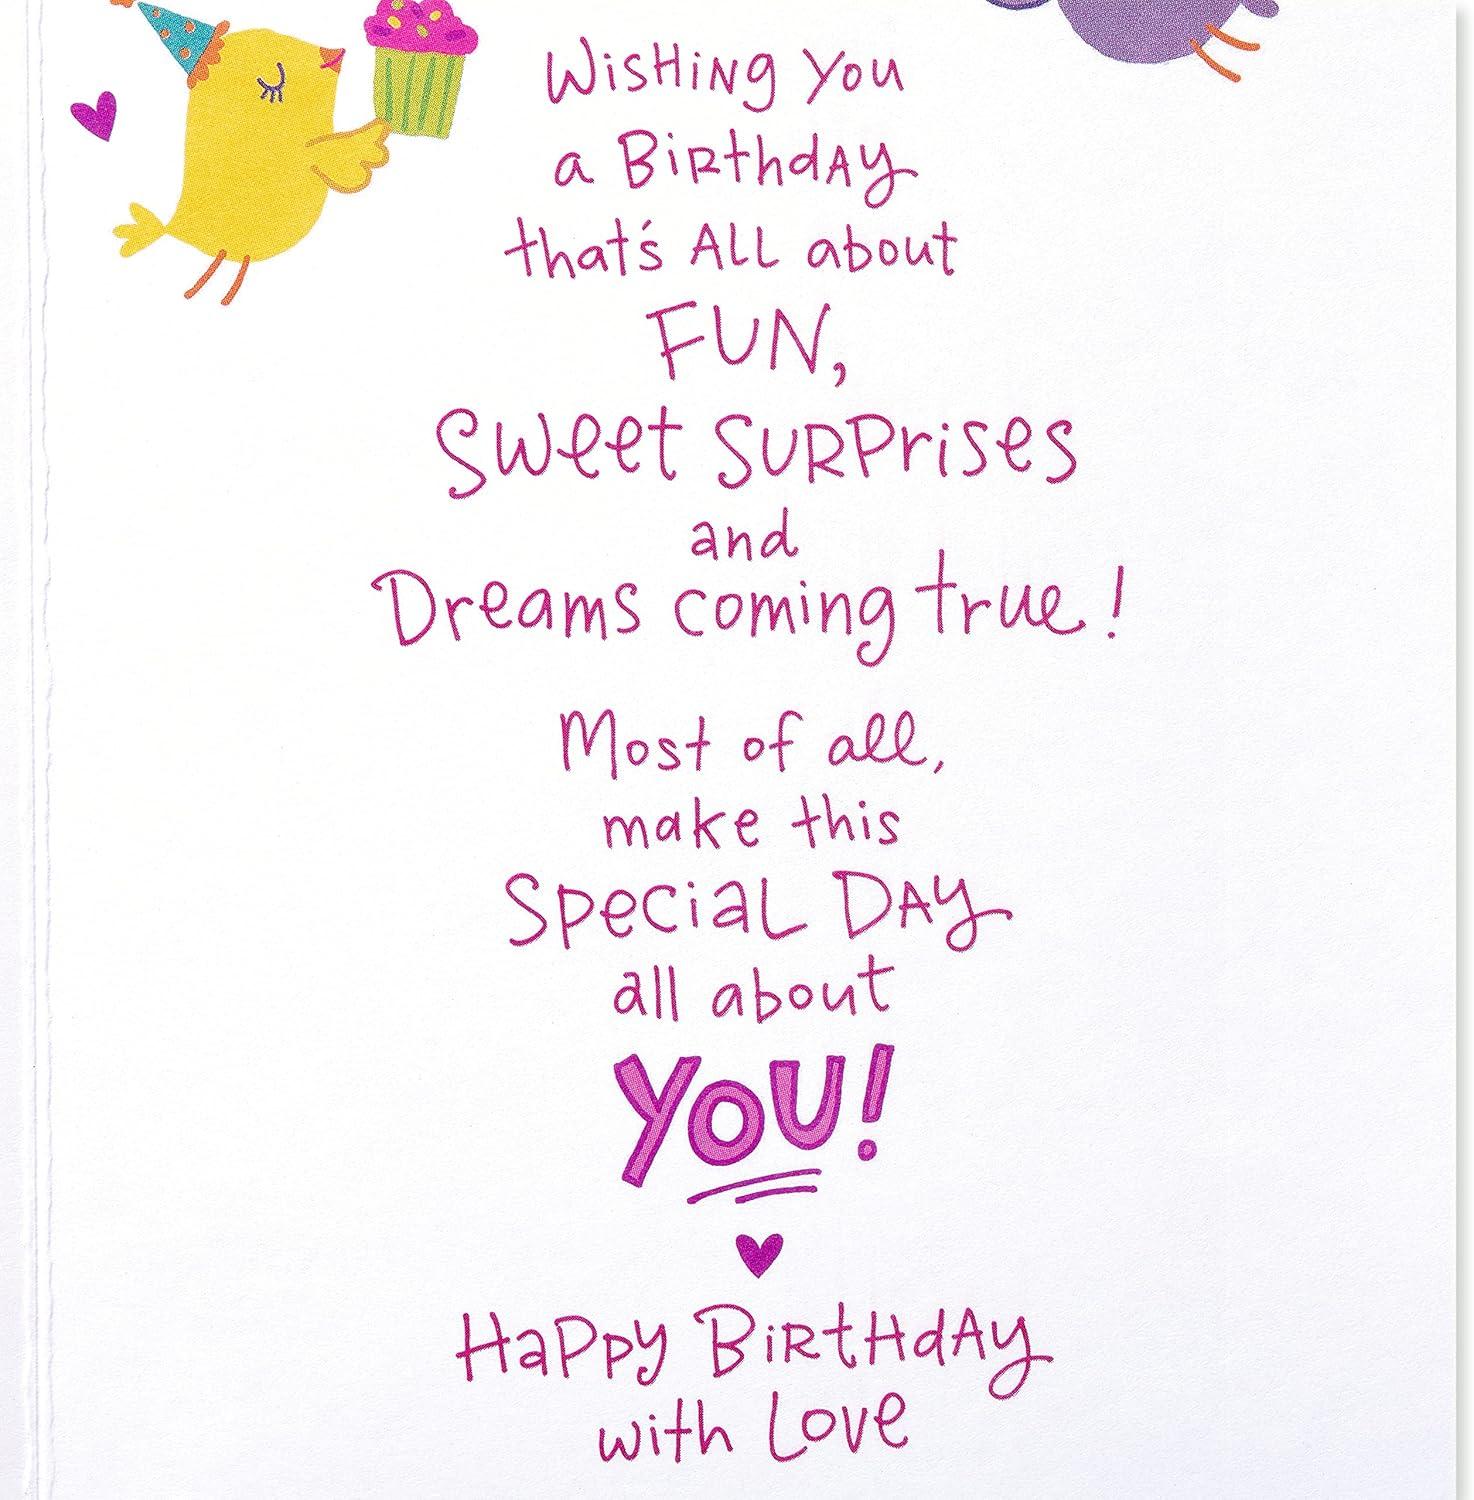 WisHiNg You
a BiRthdAy
that's ALL about
FUN,
Sweet SURPrises
and
Dreams coming true!
Most of all,
make this
Special DAy
all about
YOU!
HaPPy BiRtHdAy
with Love